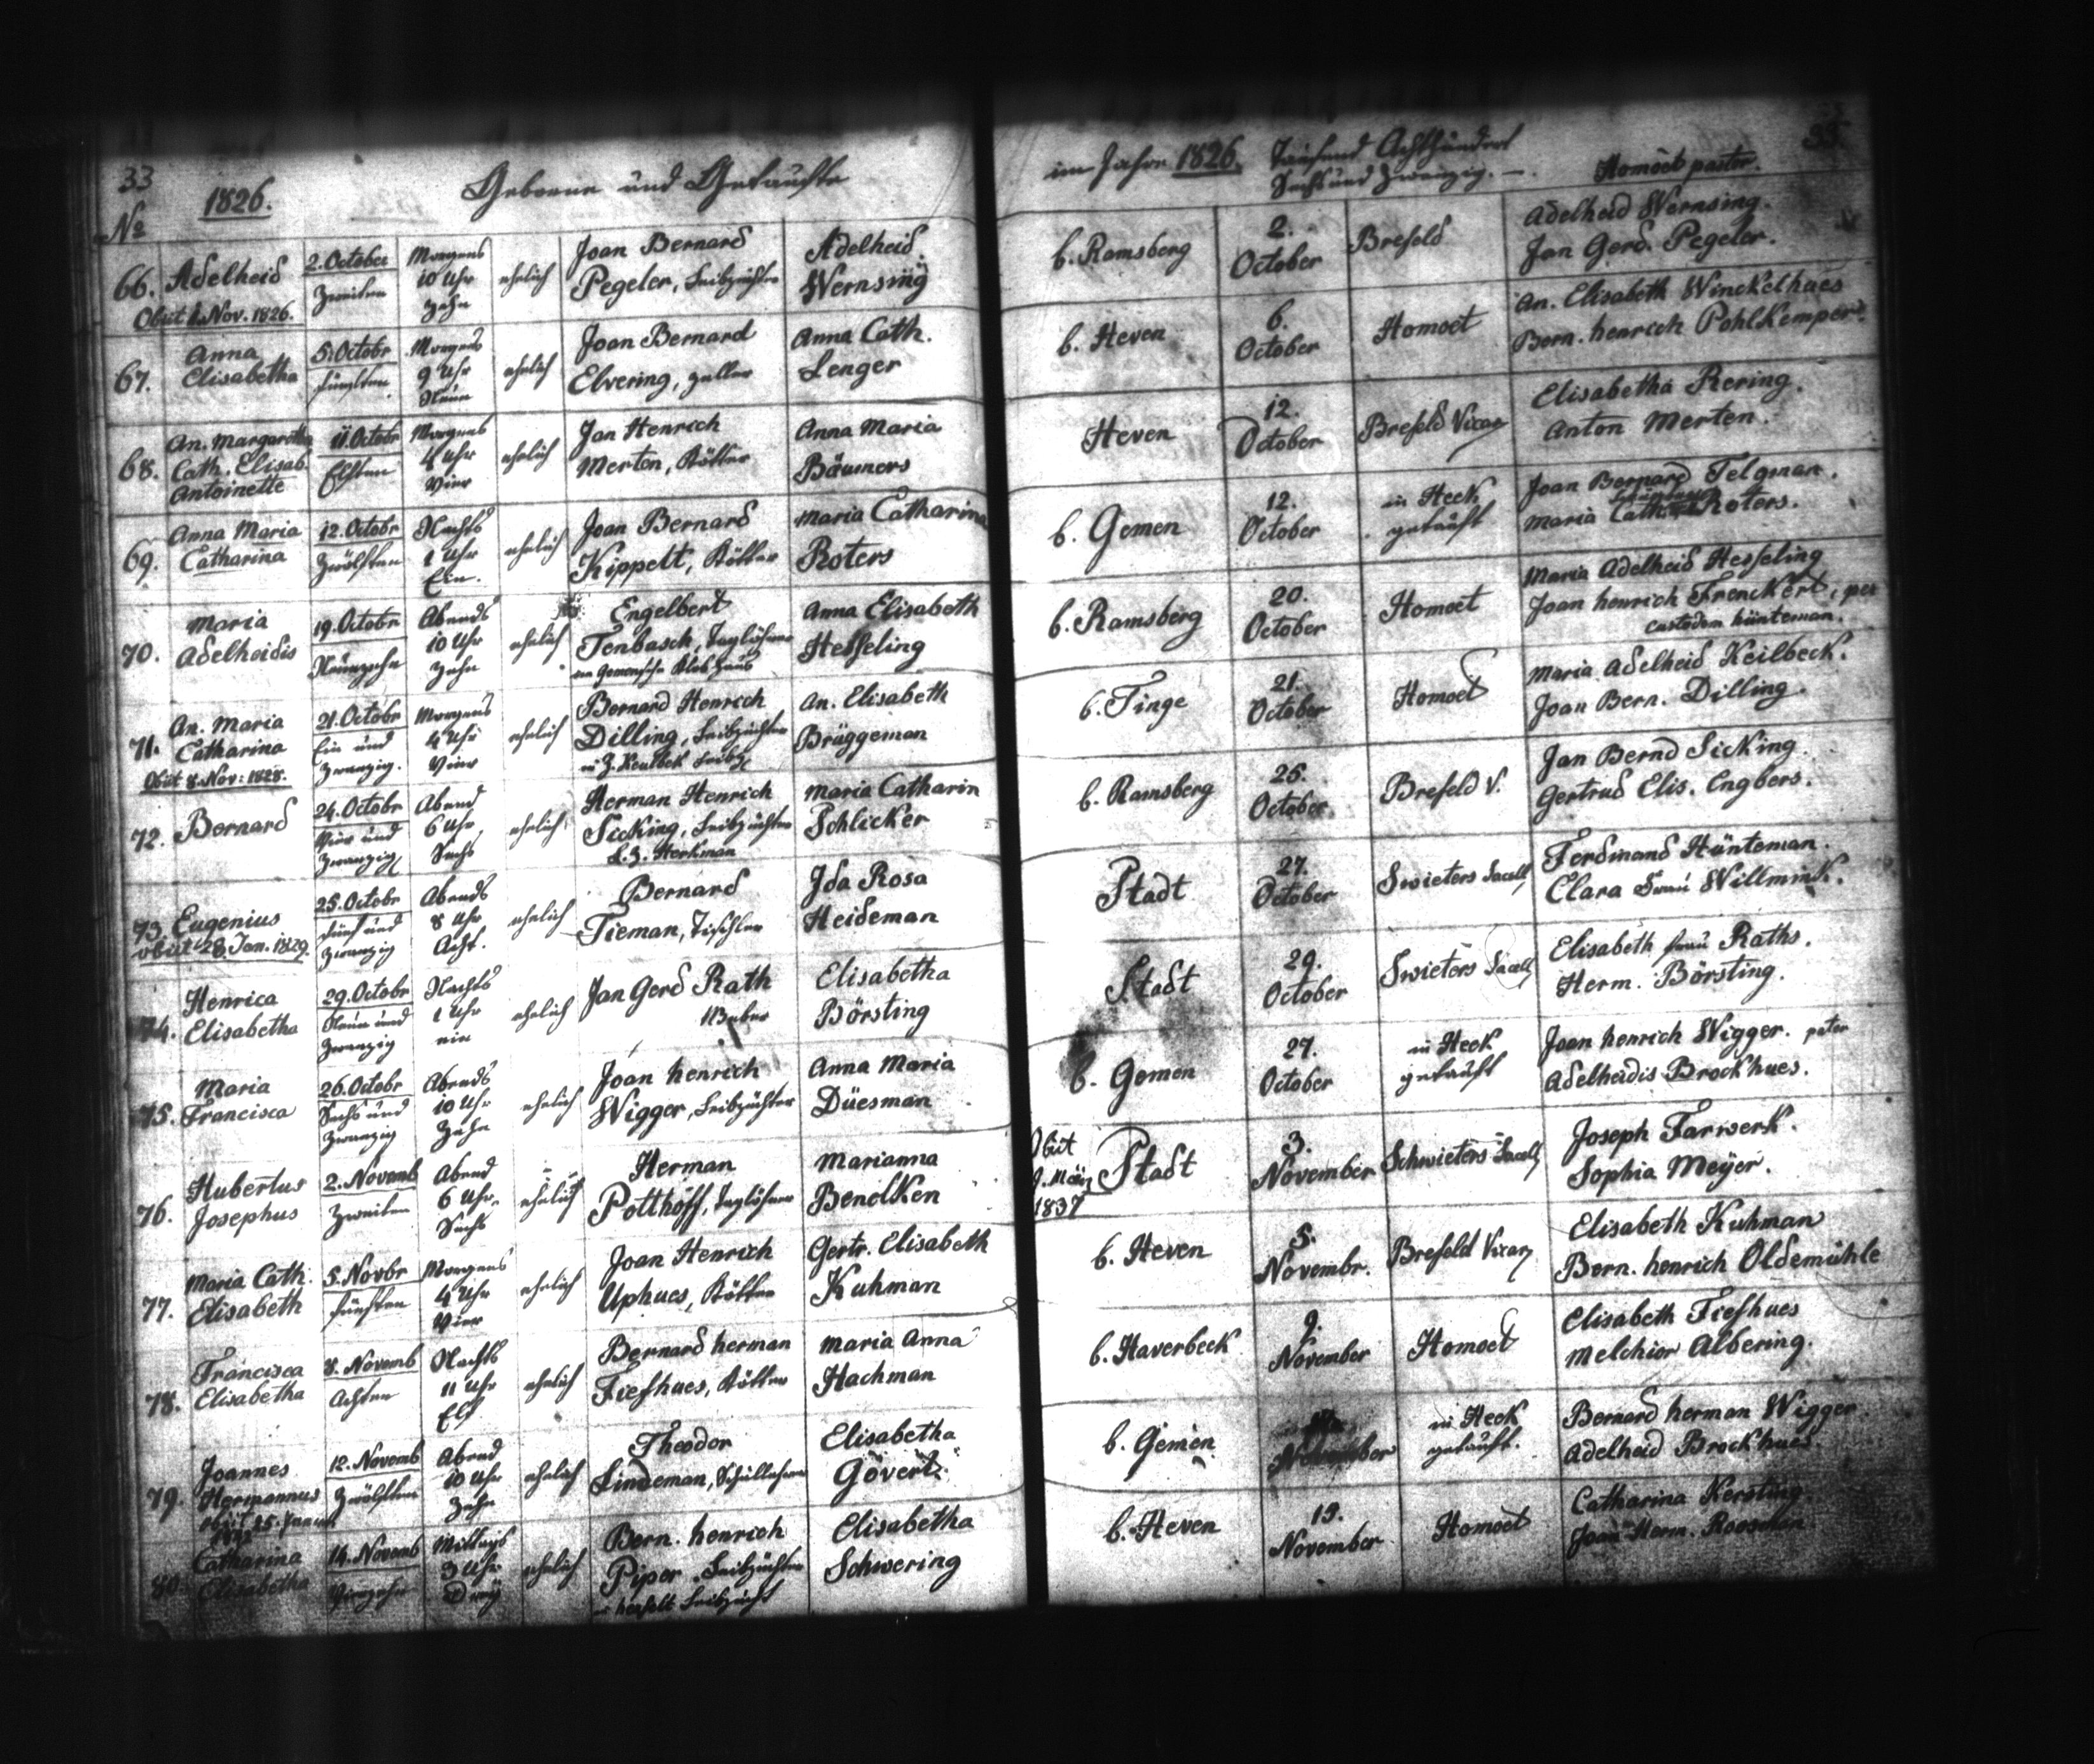 33
1826.
Geborne und Getaufte
im Jahre 1826. Tausend Achthundert
Sechs und Zwanzig. —.
Homoet pastor.
33.
No
66. Adelheid
Obiit 1. Nov. 1826.
2. October
Zweiten
Morgens
10 Uhr
Zehn
ehelich
Joan Bernard
Pegeler, Leibzüchter
Adelheid
Wernsing
b. Ramsberg
2.
October
Brefeld
Adelheid Wernsing.
Jan Gerd. Pegeler.
67. Anna
Elisabetha
5. Octobr
fünften
Morgens
9 Uhr
Neun
ehelich
Joan Bernard
Elvering, Zeller
Anna Cath.
Lenger
b. Heven
6.
October
Homoet
An. Elisabeth Winckelhues
Bern. henrich Pohlkemper.
68. An. Margaretha
Cath. Elisab.
Antoinette
11. Octobr
Elften
Morgens
4 Uhr
Vier
ehelich
Jan Henrich
Merten, Kötter
Anna Maria
Bäumers
Heven
12.
October
Brefeld Vicar
Elisabetha Rering.
Anton Merten.
69. Anna Maria
Catharina
12. Octobr
Zwölften
Nachts
1 Uhr
Ein.
ehelich
Joan Bernard
Kippelt, Kötter
Maria Catharina
Roters
b. Gemen
12.
October
in Heek
getauft
Joan Bernard Telgman.
Maria Cath. Roters.
70. Maria
Adelheidis
19. Octobr
Neunzehn
Abends
10 Uhr
Zehn
ehelich
Engelbert
Tenbasch, Taglöhner
Anna Elisabeth
Hesseling
b. Ramsberg
20.
October
Homoet
Maria Adelheid Hesseling
Joan henrich Frenckert, per
custodem hünteman.
71. An. Maria
Catharina
Obiit 8. Nov: 1828.
21. Octobr
Ein und
Zwanzig.
Morgens
4 Uhr
Vier
ehelich
Bernard Henrich
Dilling, Leibzüchter
An. Elisabeth
Brüggeman
b. Tinge
21.
October
Homoet
Maria Adelheid Keilbeck.
Joan Bern. Dilling.
72. Bernard
24. Octobr
Vier und
Zwanzig
Abend
6 Uhr
Sechs
ehelich
Herman Henrich
Sicking, Leibzüchter
Maria Catharin
Schlicker
b. Ramsberg
25.
October
Brefeld V.
Jan Bernd Sicking.
Gertrud Elis. Engbers.
73. Eugenius
obiit 28. Jan. 1829.
25. Octobr
fünf und
Zwanzig
Abends
8 Uhr
Acht.
ehelich
Bernard
Tieman, Tischler
Ida Rosa
Heideman
Stadt
27.
October
Swieters Sacell
Ferdinand Hünteman.
Clara Frau Willmink.
74. Henrica
Elisabetha
29. Octobr
Neun und
Zwanzig
Nachts
1 Uhr
ein
ehelich
Jan Gerd Rath
Weber
Elisabetha
Börsting
Stadt
29.
October
Swieters Sacell
Elisabeth frau Raths.
Herm. Börsting.
75. Maria
Francisca
26. Octobr
Sechs und
Zwanzig
Abends
10 Uhr
Zehn
ehelich
Joan henrich
Wigger, Leibzüchter
Anna Maria
Düesman
b. Gemen
27.
October
in Heek
getauft
Joan henrich Wigger. pater
Adelheidis Brockhues.
76. Hubertus
Josephus
2. Novemb
Zweiten
Abend
6 Uhr
Sechs
ehelich
Herman
Potthoff, Taglöhner
Marianna
Benelken
Obiit
9. März
1837
Stadt
3.
November
Schwieters Sacell
Joseph Farwerk.
Sophia Meyer.
77. Maria Cath.
Elisabeth
5. Novbr
fünften
Morgens
4 Uhr
Vier
ehelich
Joan Henrich
Uphues, Kötter
Gertr. Elisabeth
Kuhman
b. Heven
5.
Novembr.
Brefeld Vicar
Elisabeth Kuhman
Bern. henrich Oldemühle
78. Francisca
Elisabetha
8. Novemb
Achten
Nachts
11 Uhr
Elf
ehelich
Bernard herman
Fiefhues, Kötter
Maria Anna
Hachman
b. Haverbeck
9.
November
Homoet
Elisabeth Fiefhues
Melchior Albering.
79. Joannes
Hermannus
12. Novemb
Zwölften
Abend
10 Uhr
Zehn
ehelich
Theodor
Lindeman, Schullehrer
Elisabetha
Gövert
b. Gemen
November
in Heek
getauft.
Bernard herman Wigger
Adelheid Brockhues.
80. Catharina
Elisabetha
14. Novemb
Vierzehn
Mittags
3 Uhr
Drey
ehelich
Bern. henrich
Piper, Leibzüchter
Elisabetha
Schwering
b. Heven
15.
November
Homoet
Catharina Kersting.
Joan Herm. Rooseman